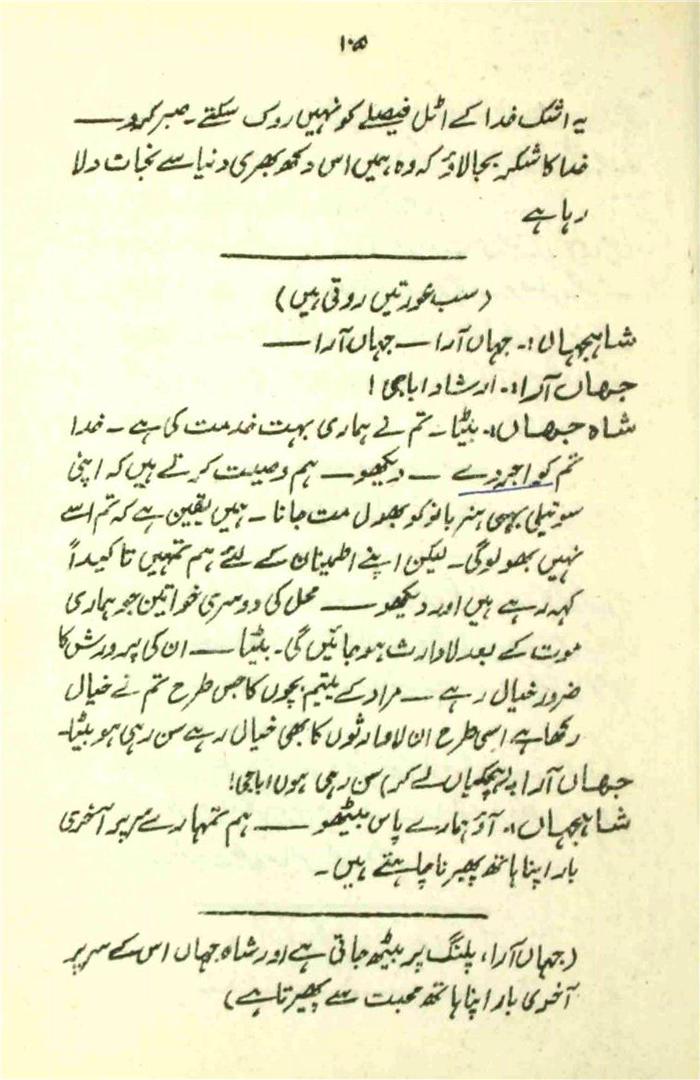 ۱۰۵
یہ اشک خدا کے اٹل فیصلے کو نہیں روک سکتے۔ صبر کرو ——
خدا کا شکر بجا لاؤ کہ وہ ہمیں اس دکھ بھری دنیا سے نجات دلا
رہا ہے
(سب عورتیں روتی ہیں)
شاہجہاں:۔ جہاں آرا — جہاں آرا —
جہاں آرا:۔ ارشاد اباجی!
شاہ جہاں:۔ بیٹا۔ تم نے ہماری بہت خدمت کی ہے۔ خدا
تم کو اجر دے — دیکھو — ہم وصیت کرتے ہیں کہ اپنی
سوتیلی بہن ہنر بانو کو بھول مت جانا۔ ہمیں یقین ہے کہ تم اسے
نہیں بھولو گی۔ لیکن اپنے اطمینان کے لئے ہم تمہیں تاکیداً
کہہ رہے ہیں اور دیکھو —— محل کی دوسری خواتین جو ہماری
موت کے بعد لاوارث ہو جائیں گی۔ بیٹیا — ان کی پرورش کا
ضرور خیال رہے — مراد کے یتیم بچوں کا جس طرح تم نے خیال
رکھا ہے اسی طرح ان لاوارثوں کا بھی خیال رہے سن رہی ہو بیٹیا۔
جہاں آرا:۔ (ہچکیاں لے کر) سن رہی ہوں اباجی!
شاہجہاں:۔ آؤ ہمارے پاس بیٹھو —— ہم تمہارے سر پر آخری
بار اپنا ہاتھ پھیرنا چاہتے ہیں۔
(جہاں آرا، پلنگ پر بیٹھ جاتی ہے اور شاہ جہاں اس کے سر پر
آخری بار اپنا ہاتھ محبت سے پھیرتا ہے)